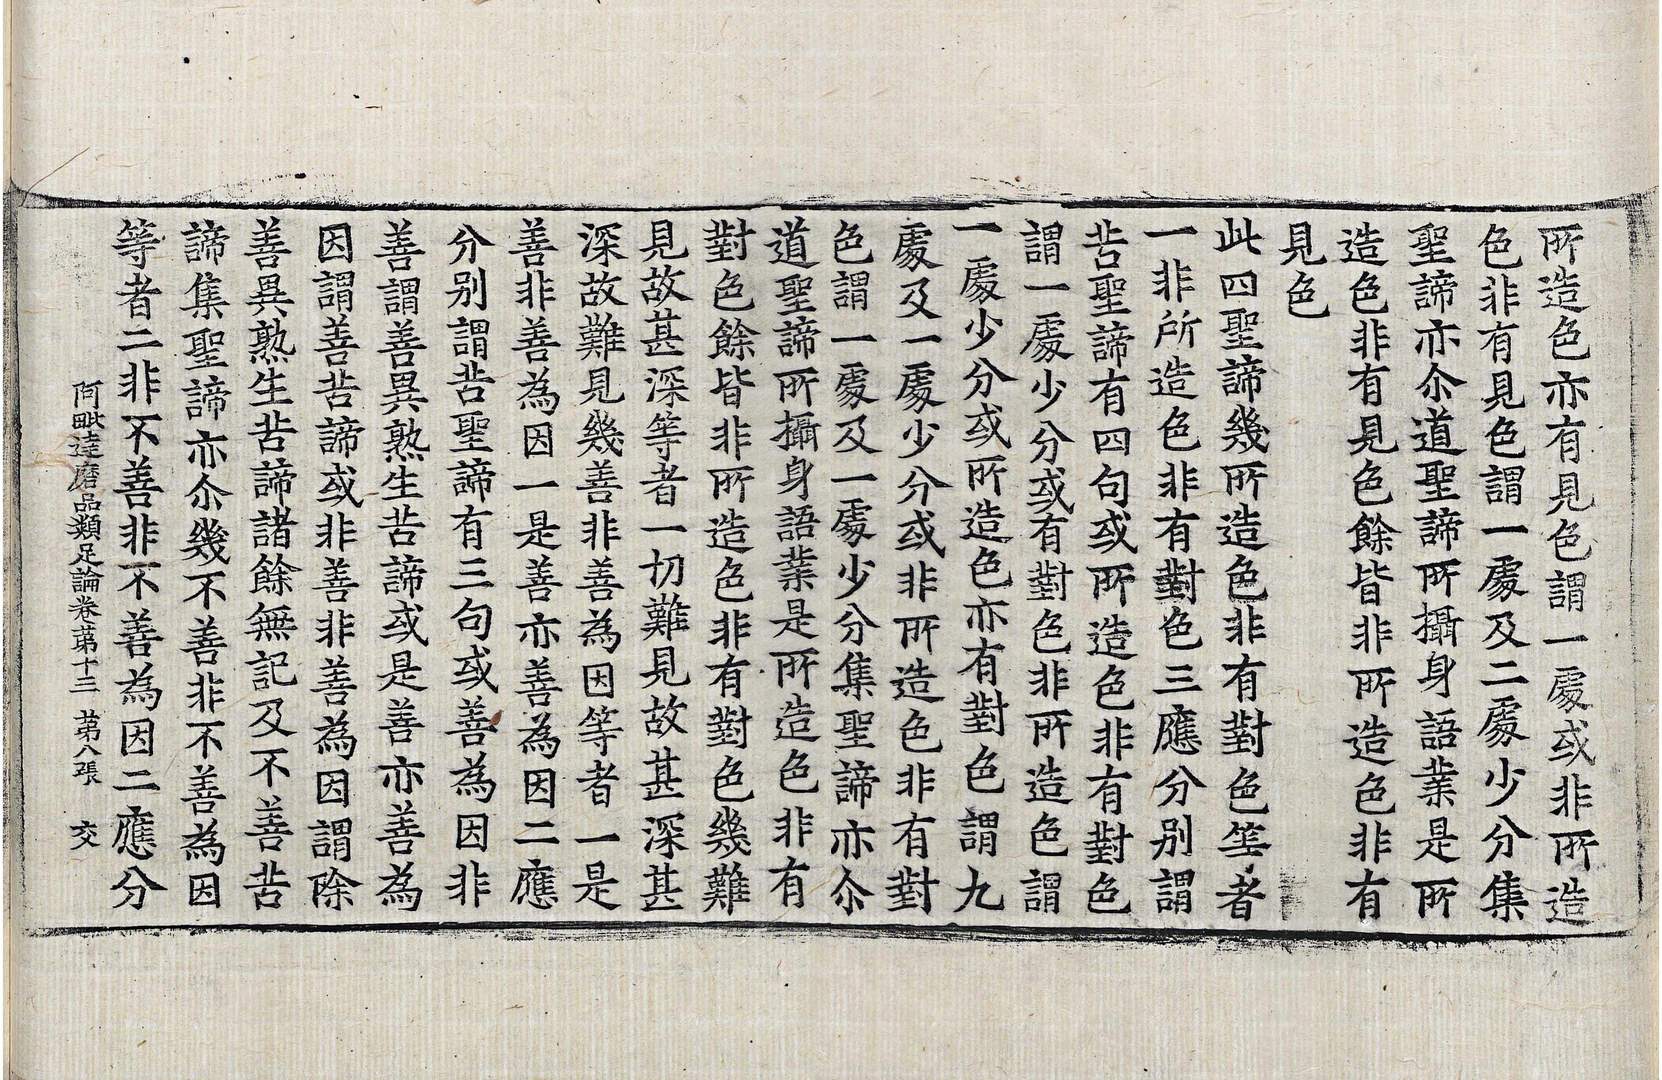 所造色亦有見色謂一處或非所造
色非有見色謂一處及二處少分集
聖諦亦尒道聖諦所攝身語業是所
造色非有見色餘皆非所造色非有
見色
此四聖諦幾所造色非有對色等者
一非所造色非有對色三應分別謂
苦聖諦有四句或所造色非有對色
謂一處少分或有對色非所造色謂
一處少分或所造色亦有對色謂九
處及一處少分或非所造色非有對
色謂一處及一處少分集聖諦亦尒
道聖諦所攝身語業是所造色非有
對色餘皆非所造色非有對色幾難
見故甚深等者一切難見故甚深甚
深故難見幾善非善為因等者一是
善非善為因一是善亦善為因二應
分別謂苦聖諦有三句或善為因非
善謂善異熟生苦諦或是善亦善為
因謂善苦諦或非善非善為因謂除
善異熟生苦諦諸餘無記及不善苦
諦集聖諦亦尒幾不善非不善為因
等者二非不善非不善為因二應分
阿毗達磨品類足論卷苐十三 苐八張 交